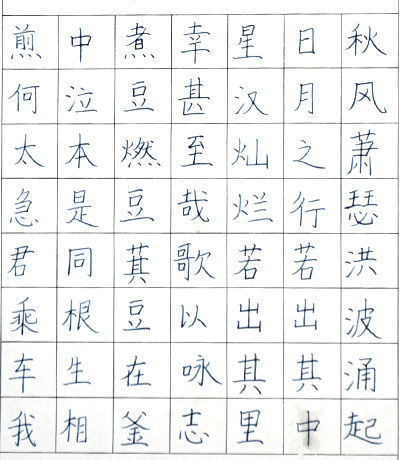 秋风萧瑟洪波涌起
日月之行若出其中
星汉灿烂若出其里
幸甚至哉歌以咏志
煮豆燃豆萁豆在釜
中泣本是同根生相
煎何太急君乘车我